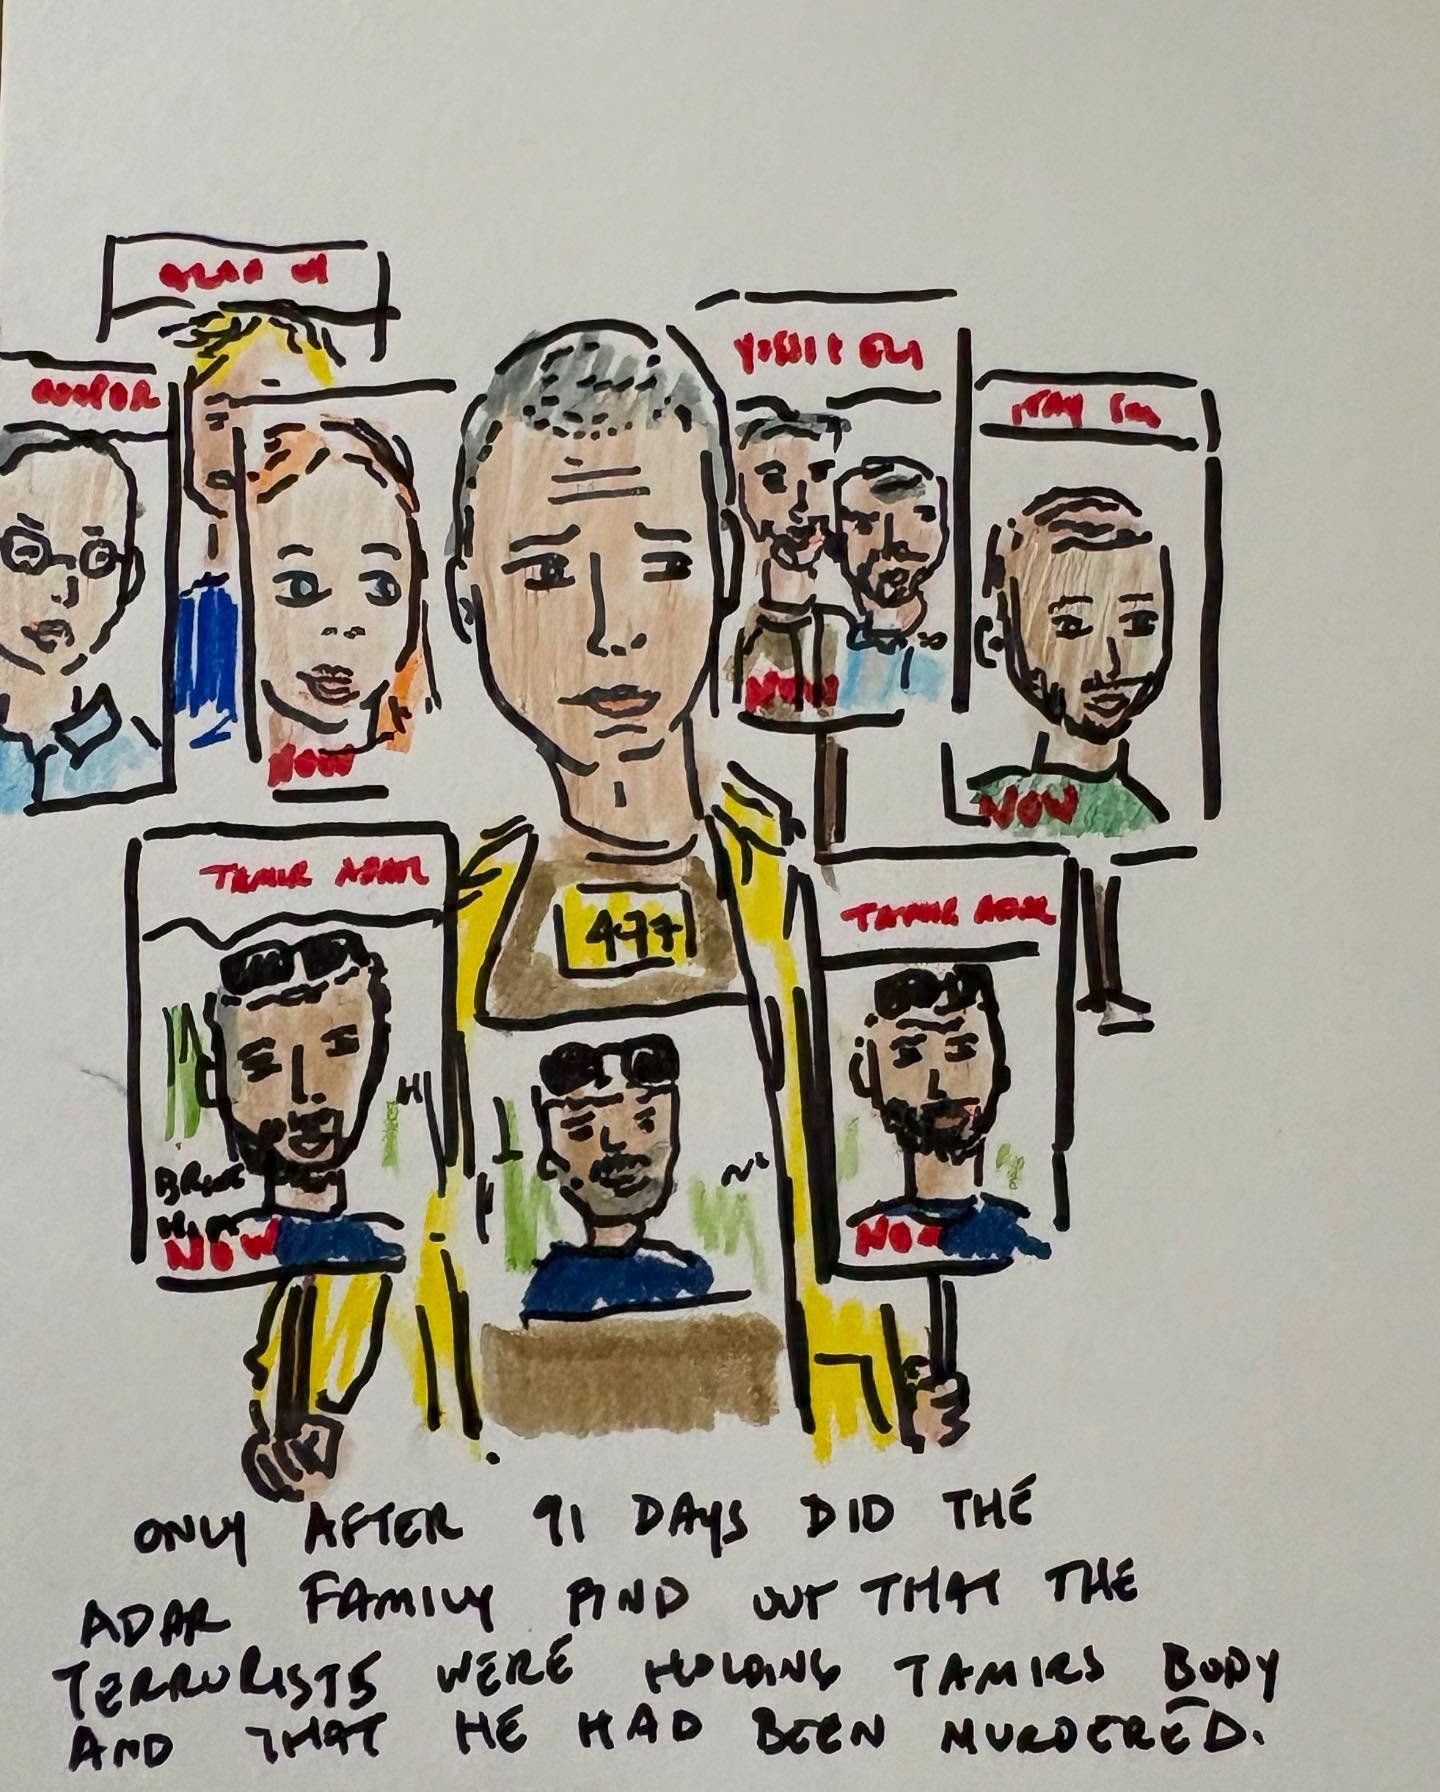 NOW
NOW
NOW
TAMIR ADAR
477
TAMIR ADAR
BRING
HIM
NOW
NOW
ONLY AFTER 91 DAYS DID THE
ADAR FAMILY FIND OUT THAT THE
TERRORISTS WERE HOLDING TAMIRS BODY
AND THAT HE HAD BEEN MURDERED.